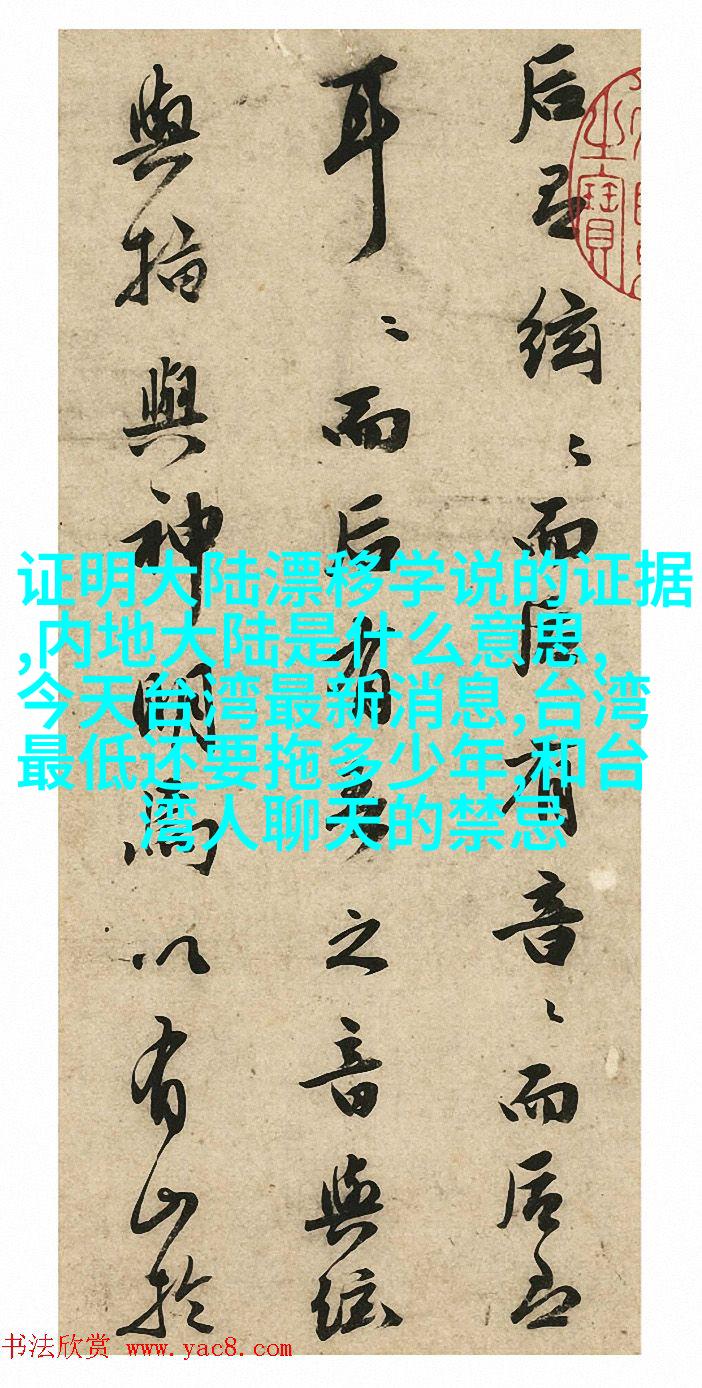 后絃〻而后有音〻而后
耳〻而后有之音與絃
與指與神明而以有山於
之寶
证明大陆漂移学说的证据
,内地大陆是什么意思,
今天台湾最新消息,台湾
最低还要拖多少年,和台
湾人聊天的禁忌
书法欣赏 www.yac8.com